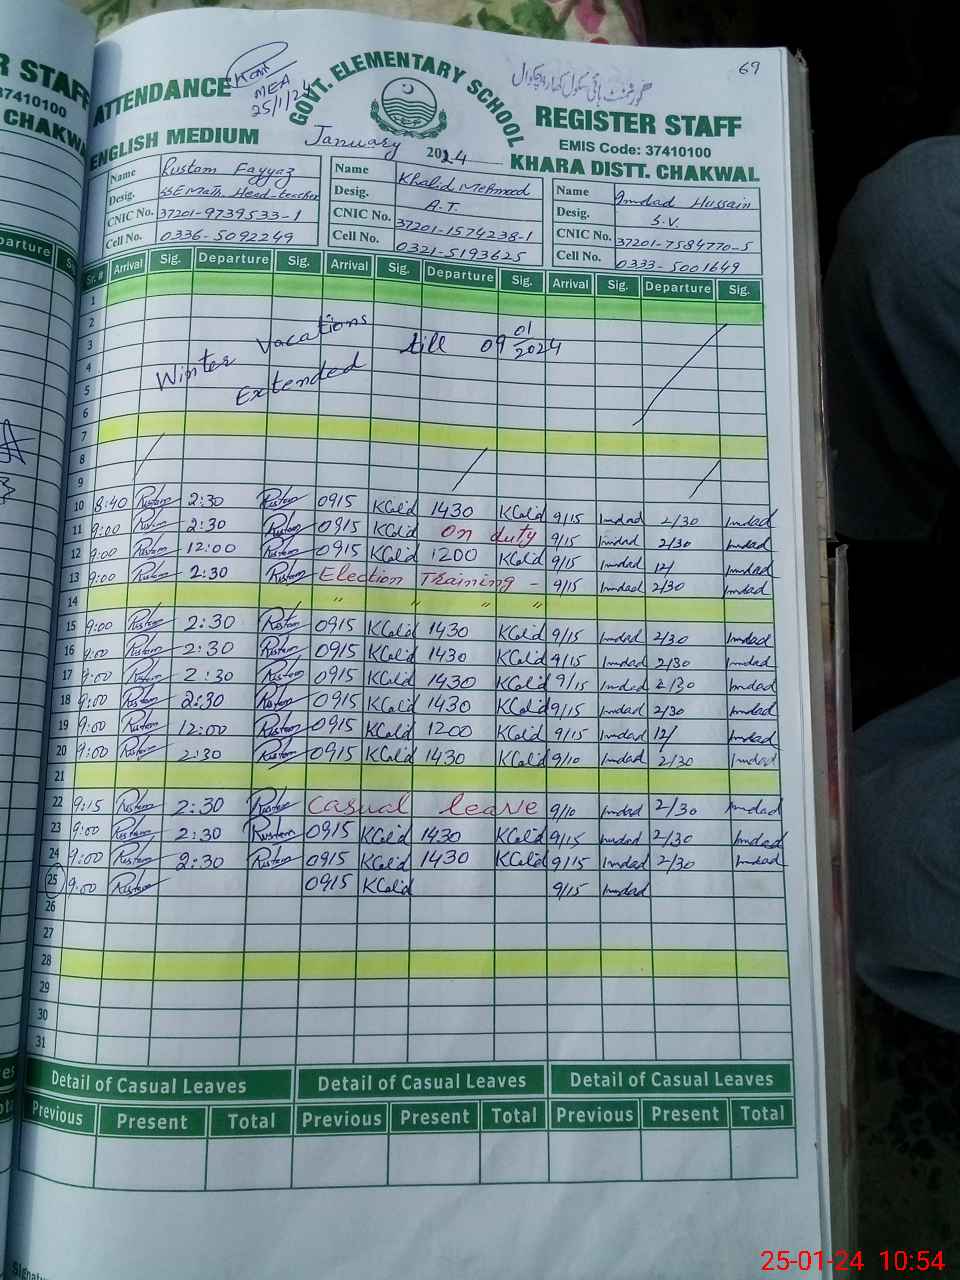 R STAFF
37410100
CHAKWAL
parture
69
ATTENDANCE
MEA
25/1/24
GOVT. ELEMENTARY SCHOOL
REGISTER STAFF
EMIS Code: 37410100
ENGLISH MEDIUM
January 2024
KHARA DISTT. CHAKWAL
Name Rustam Fayyaz
Desig. SSE Math Head-teacher
CNIC No. 37201-9739533-1
Cell No. 0336-5092249
Name Khalid Mehmood
Desig. A.T.
CNIC No. 37201-1574238-1
Cell No. 0321-5193625
Name Imdad Hussain
Desig. S.V.
CNIC No. 37201-7584770-5
Cell No. 0333-5001649
Sr. # Arrival Sig. Departure Sig. Arrival Sig. Departure Sig. Arrival Sig. Departure Sig.
1
2
3
4
5
6
Winter Vacations Extended till 09 01/2024
7
8
9
10 8:40 Rustam 2:30 Rustam 0915 Khalid 1430 Khalid 9/15 Imdad 2/30 Imdad
11 9:00 Rustam 2:30 Rustam 0915 Khalid On duty 9/15 Imdad 2/30 Imdad
12 9:00 Rustam 12:00 Rustam 0915 Khalid 1200 Khalid 9/15 Imdad 12/ Imdad
13 9:00 Rustam 2:30 Rustam Election Training - 9/15 Imdad 2/30 Imdad
14 " " " "
15 9:00 Rustam 2:30 Rustam 0915 Khalid 1430 Khalid 9/15 Imdad 2/30 Imdad
16 9:00 Rustam 2:30 Rustam 0915 Khalid 1430 Khalid 9/15 Imdad 2/30 Imdad
17 9:00 Rustam 2:30 Rustam 0915 Khalid 1430 Khalid 9/15 Imdad 2/30 Imdad
18 9:00 Rustam 2:30 Rustam 0915 Khalid 1430 Khalid 9/15 Imdad 2/30 Imdad
19 9:00 Rustam 12:00 Rustam 0915 Khalid 1200 Khalid 9/15 Imdad 12/ Imdad
20 9:00 Rustam 2:30 Rustam 0915 Khalid 1430 Khalid 9/10 Imdad 2/30 Imdad
21
22 9:15 Rustam 2:30 Rustam Casual leave 9/10 Imdad 2/30 Imdad
23 9:00 Rustam 2:30 Rustam 0915 Khalid 1430 Khalid 9/15 Imdad 2/30 Imdad
24 9:00 Rustam 2:30 Rustam 0915 Khalid 1430 Khalid 9/15 Imdad 2/30 Imdad
25 9:00 Rustam 0915 Khalid 9/15 Imdad
26
27
28
29
30
31
Detail of Casual Leaves Detail of Casual Leaves Detail of Casual Leaves
Previous Present Total Previous Present Total Previous Present Total
25-01-24 10:54